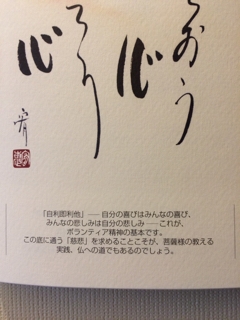 おう
心
そうり
心
「自利即利他」── 自分の喜びはみんなの喜び、
みんなの悲しみは自分の悲しみ ── これが、
ボランティア精神の基本です。
この底に通う「慈悲」を求めることこそが、菩薩様の教える
実践、仏への道でもあるのでしょう。